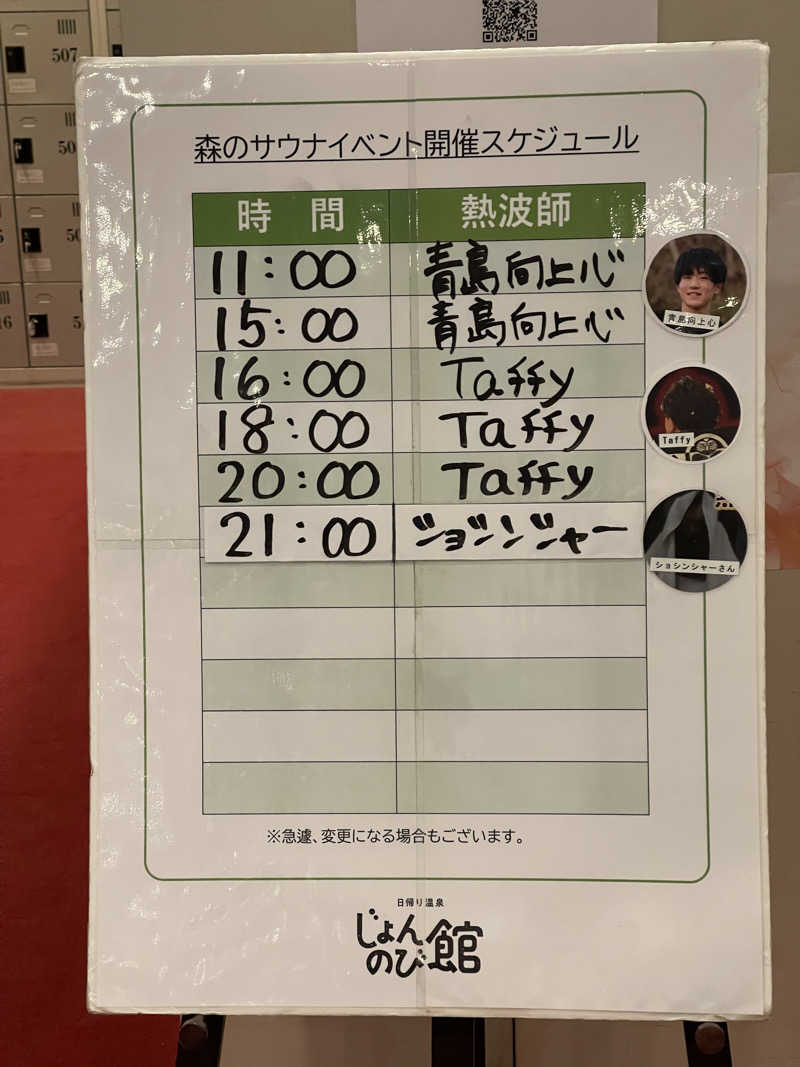 507
森のサウナイベント開催スケジュール
時 間 熱波師
11:00 青島向上心
15:00 青島向上心
16:00 Taffy
18:00 Taffy
20:00 Taffy
21:00 ショシンシャー
青島向上心
Taffy
ショシンシャーさん
※急遽、変更になる場合もございます。
日帰り温泉
じょん
のび館